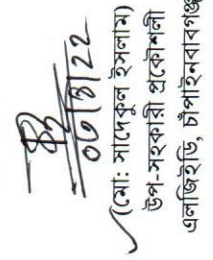 ০৩/৪/২২
(মো: সাদেকুল ইসলাম)
উপ-সহকারী প্রকৌশলী
এলজিইডি, চাঁপাইনবাবগঞ্জ